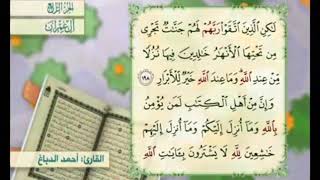 الجزء الرابع
آل عمران
لَٰكِنِ الَّذِينَ اتَّقَوْا رَبَّهُمْ لَهُمْ جَنَّٰتٌ تَجْرِى
مِن تَحْتِهَا الْأَنْهَٰرُ خَٰلِدِينَ فِيهَا نُزُلًا
مِّنْ عِندِ اللَّهِ وَمَا عِندَ اللَّهِ خَيْرٌ لِّلْأَبْرَارِ ١٩٨
وَإِنَّ مِنْ أَهْلِ الْكِتَٰبِ لَمَن يُؤْمِنُ
بِاللَّهِ وَمَا أُنزِلَ إِلَيْكُمْ وَمَا أُنزِلَ إِلَيْهِمْ
خَٰشِعِينَ لِلَّهِ لَا يَشْتَرُونَ بِـَٔايَٰتِ اللَّهِ
القارئ: أحمد الدباغ